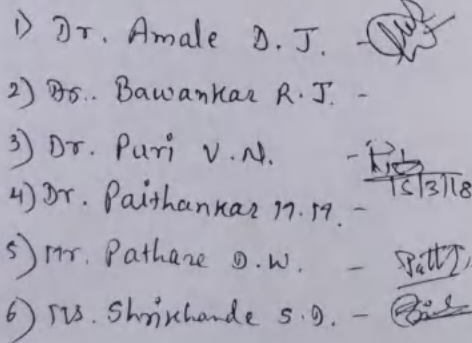 1) Dr. Amale D. J. -
2) Dr. Bawankar R. J. -
3) Dr. Puri V. N. -
15/3/18
4) Dr. Paithankar M. M. -
5) Mr. Pathare D. W. -
6) Ms. Shrikhande S. D. -